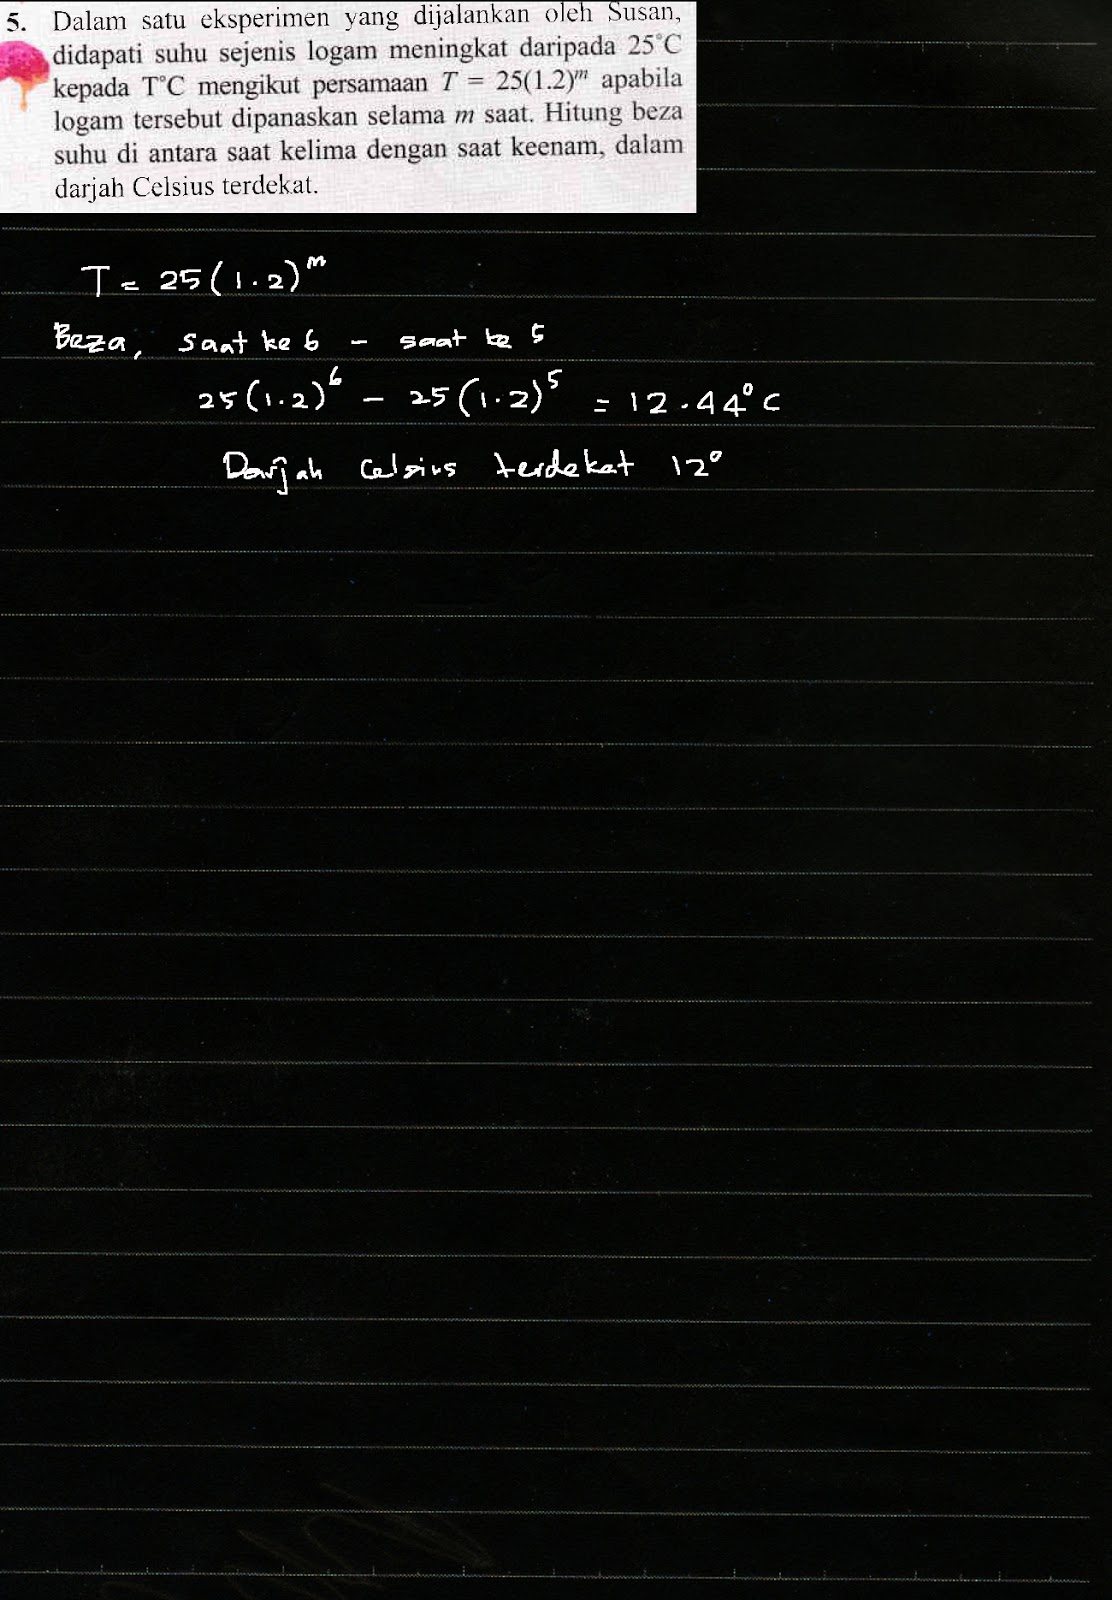 5. Dalam satu eksperimen yang dijalankan oleh Susan,
didapati suhu sejenis logam meningkat daripada 25°C
kepada T°C mengikut persamaan T = 25(1.2)ᵐ apabila
logam tersebut dipanaskan selama m saat. Hitung beza
suhu di antara saat kelima dengan saat keenam, dalam
darjah Celsius terdekat.
T = 25(1.2)ᵐ
Beza, saat ke 6 - saat ke 5
25(1.2)⁶ - 25(1.2)⁵ = 12.44°C
Darjah Celsius terdekat 12°